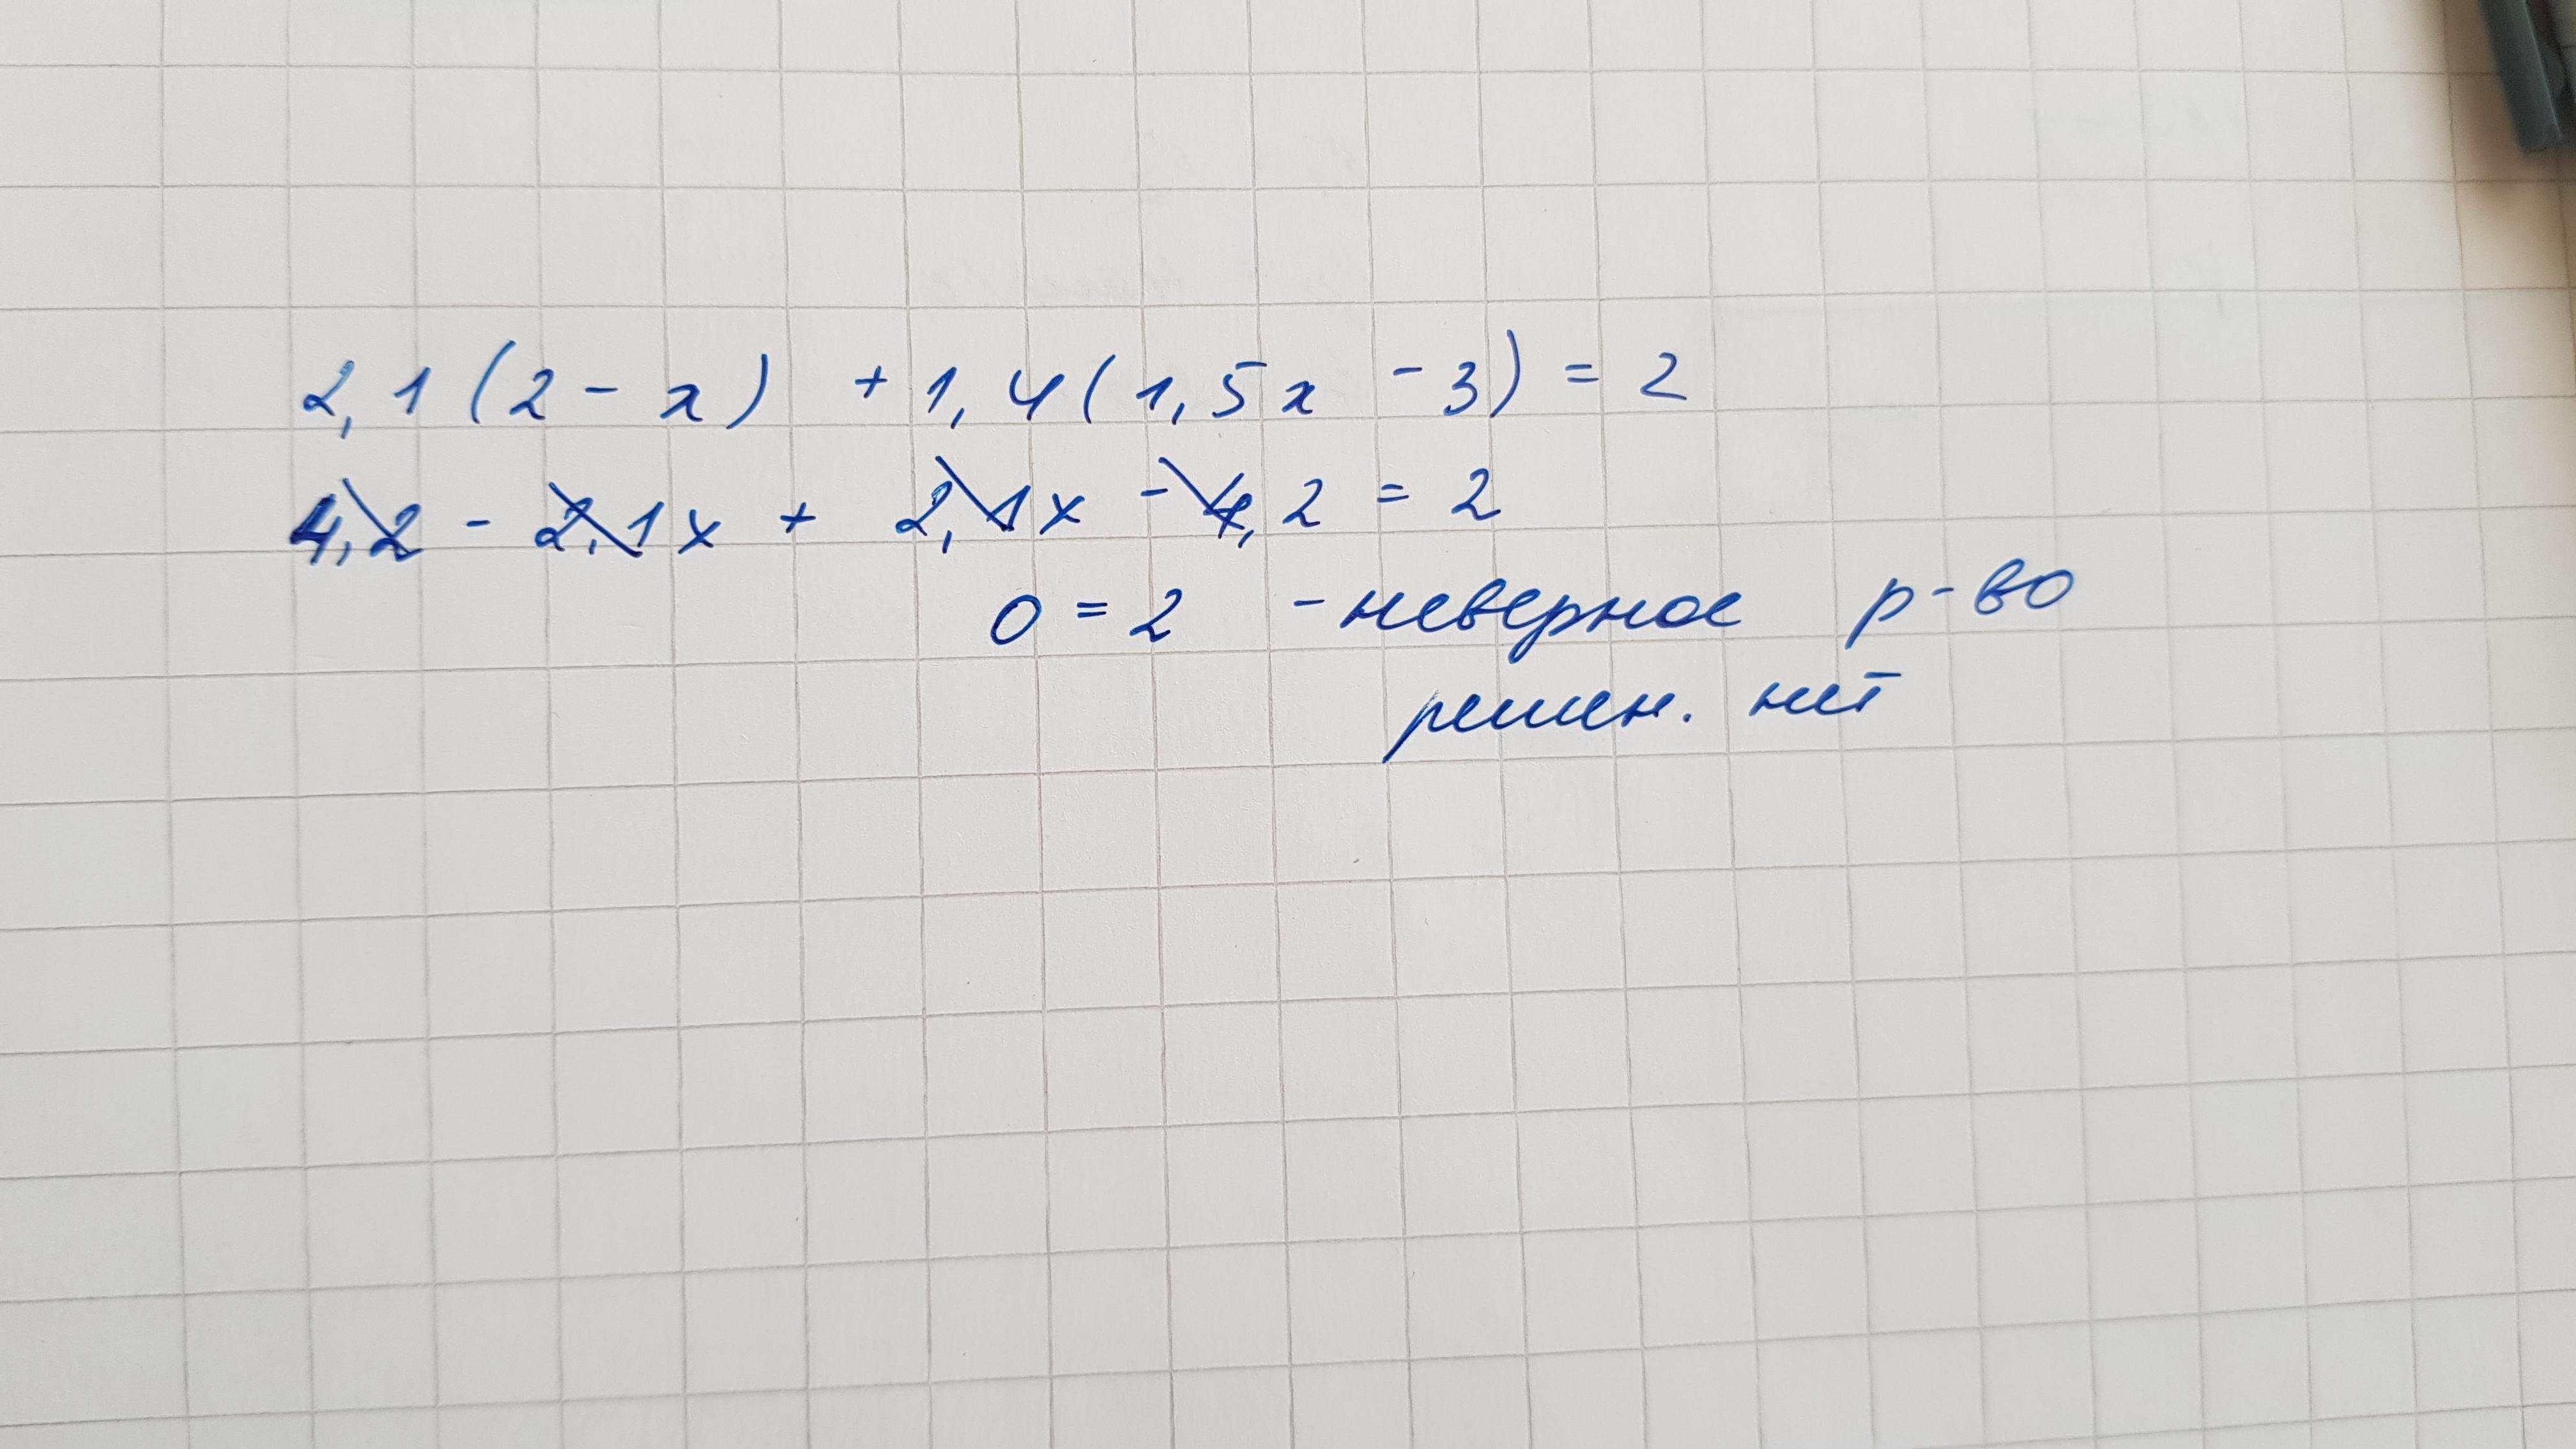 2,1(2 - x) + 1,4(1,5x - 3) = 2
4,2 - 2,1x + 2,1x - 4,2 = 2
0 = 2 - неверное р-во
решен. нет